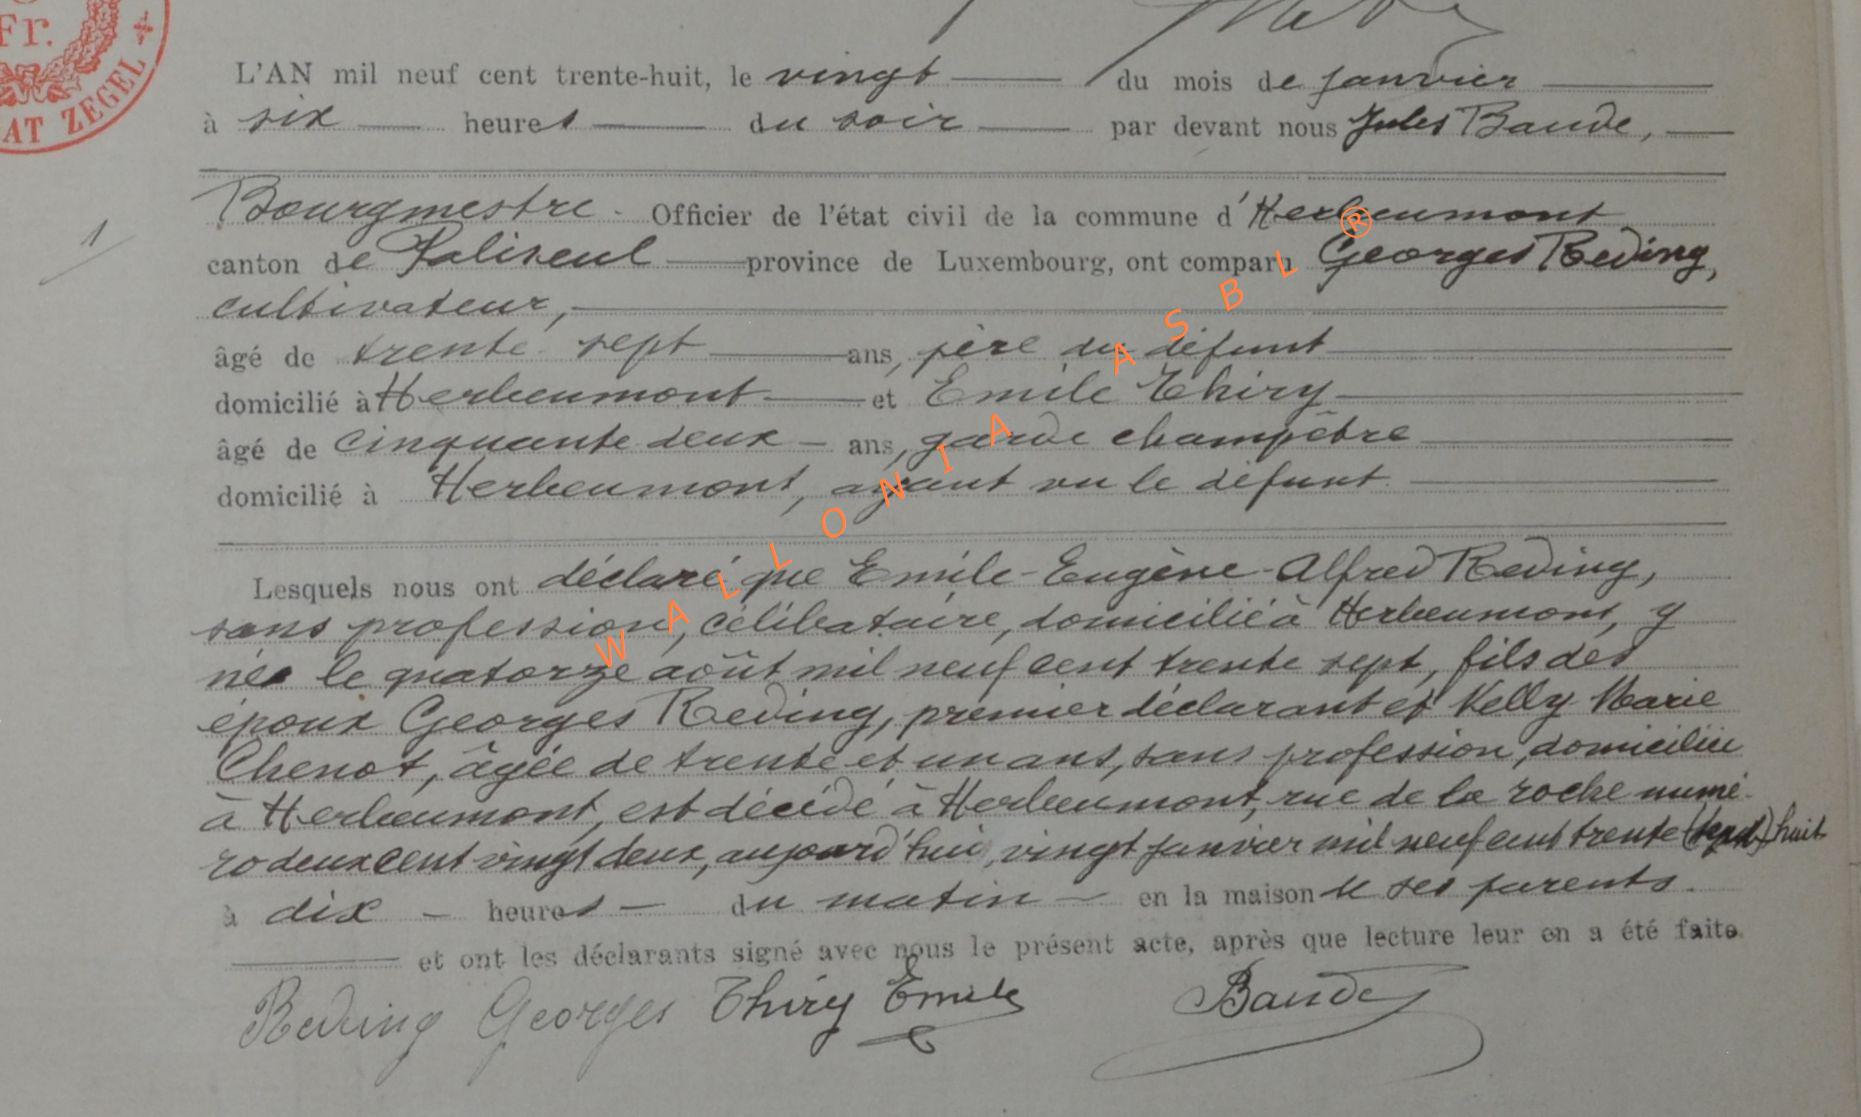 Fr.
AT ZEGEL
L'AN mil neuf cent trente-huit, le vingt du mois de janvier
à six heures du soir par devant nous Jules Baude,
1
Bourgmestre Officier de l'état civil de la commune d'Herbeumont
canton de Paliseul province de Luxembourg, ont comparu Georges Reding,
cultivateur,
âgé de trente sept ans, père du défunt
domicilié à Herbeumont et Emile Thiry
âgé de cinquante deux ans, garde champêtre
domicilié à Herbeumont, ayant vu le défunt
Lesquels nous ont déclaré que Emile-Eugène-Alfred Reding,
sans profession, célibataire, domicilié à Herbeumont, y
né le quatorze août mil neuf cent trente sept, fils des
époux Georges Reding, premier déclarant et Nelly Marie
Chenot, âgée de trente et un ans, sans profession, domiciliée
à Herbeumont, est décédé à Herbeumont, rue de la roche numé-
ro deux cent vingt deux, aujourd'hui, vingt janvier mil neuf cent trente (sept) huit
à dix heures du matin en la maison de ses parents.
et ont les déclarants signé avec nous le présent acte, après que lecture leur en a été faite.
Reding Georges Thiry Emile Baude
WALLONIA ASBL ®